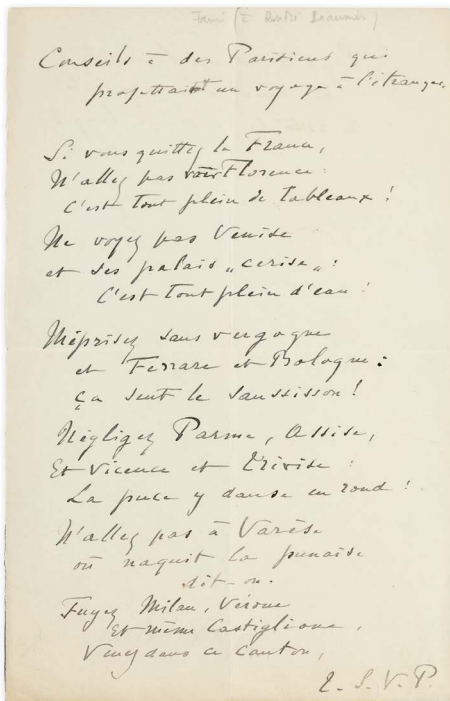 (à André Beaunier)
Conseils à des Parisiens qui
projettaient un voyage à l'étranger.
Si vous quittez la France,
N'allez pas voir Florence :
C'est tout plein de tableaux !
Ne voyez pas Venise
et ses palais „cerise„ :
C'est tout plein d'eau !
Méprisez sans vergogne
et Ferrare et Bologne :
ça sent le saussisson !
Négligez Parme, Assise,
Et Vicence et Trévise :
La puce y danse en rond !
N'allez pas à Varèse
où naquit la punaise
dit-on.
Fuyez Milan, Vérone
Et même Castiglione,
Venez dans ce canton,
T. S. V. P.